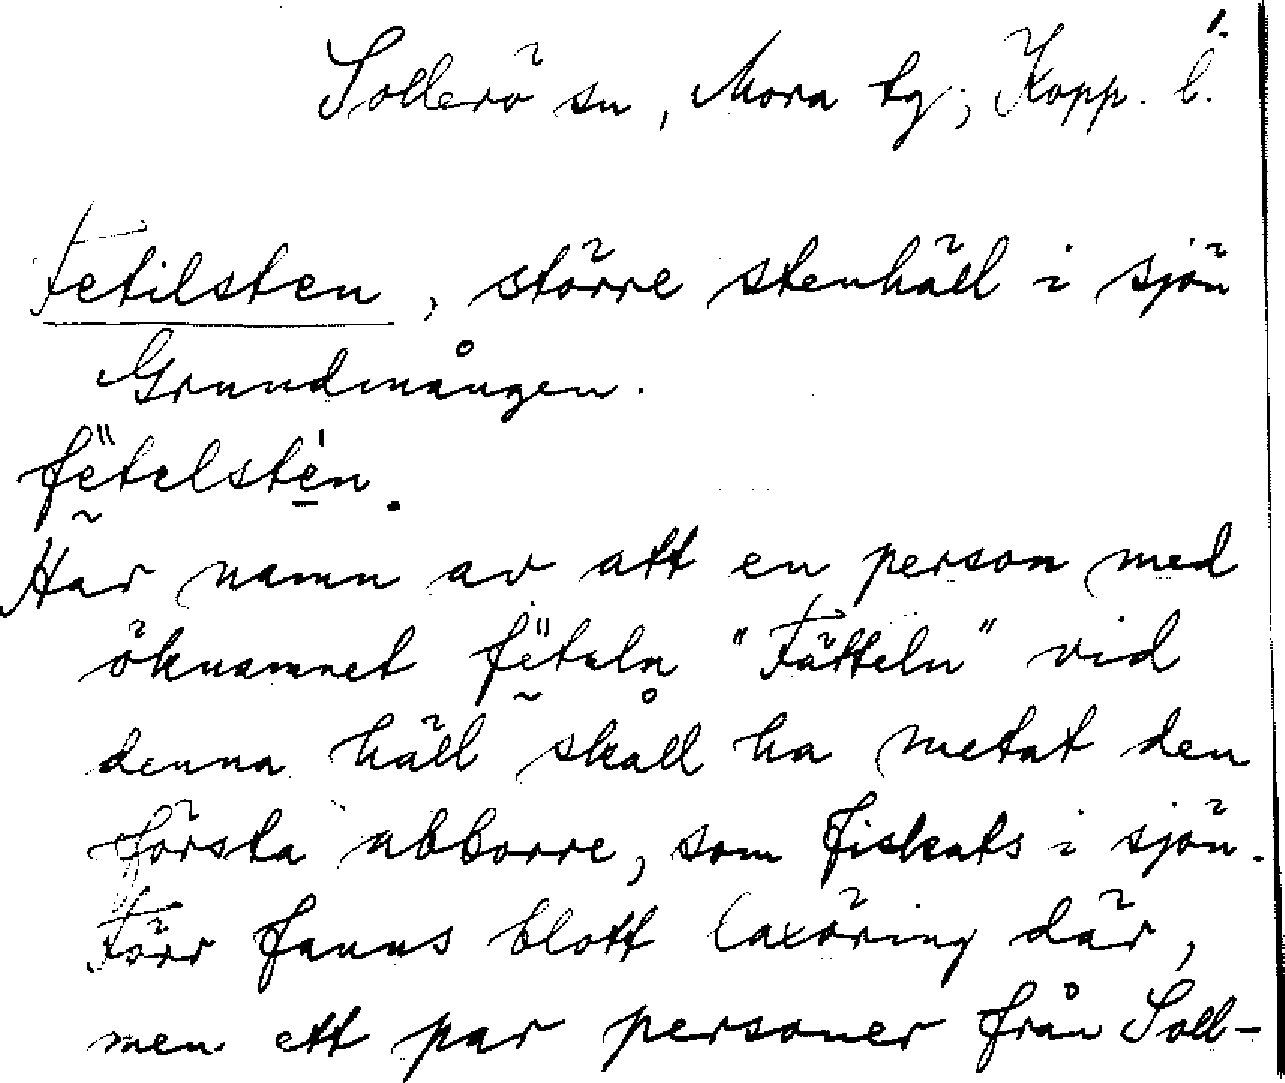 Sollerö sn, Mora tg; Kopp. l.
Fetilsten, större stenhäll i sjön
Grundmången.
fë̃telsté̱n.
Har namn av att en person med
öknamnet "Fätteln" vid
denna häll skall ha metat den
första abborre, som fiskats i sjön.
Förr fanns blott laxöring där,
men ett par personer från Soll-